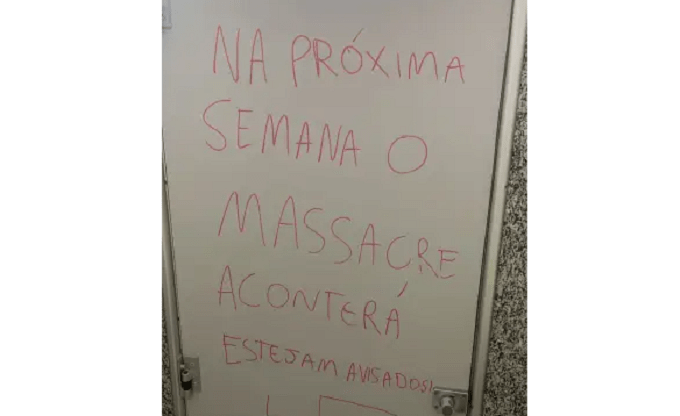 NA PRÓXIMA
SEMANA O
MASSACRE
ACONTERÁ
ESTEJAM AVISADOS!